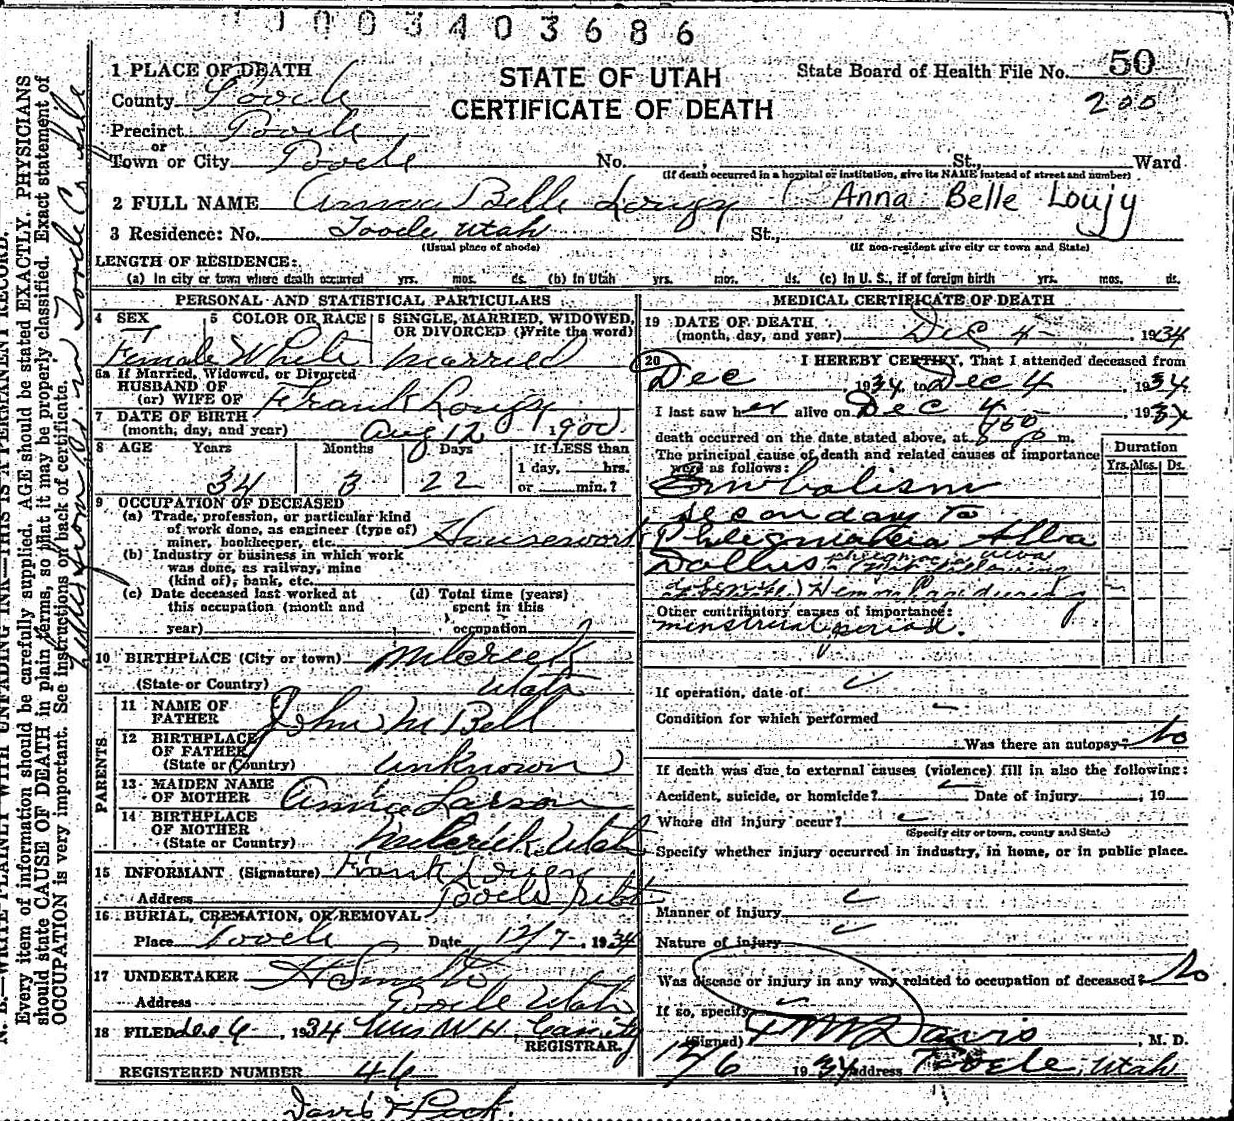 1000340 3686
STATE OF UTAH
CERTIFICATE OF DEATH
State Board of Health File No. 50
200
1 PLACE OF DEATH
County Tooele
Precinct Tooele
or
Town or City Tooele No. , St., Ward
(If death occurred in a hospital or institution, give its NAME instead of street and number)
2 FULL NAME Anna Belle Loujy (Anna Belle Loujy
3 Residence: No. Tooele Utah St.,
(Usual place of abode) (If non-resident give city or town and State)
LENGTH OF RESIDENCE:
(a) In city or town where death occurred yrs. mos. ds. (b) In Utah yrs. mos. ds. (c) In U. S., if of foreign birth yrs. mos. ds.
PERSONAL AND STATISTICAL PARTICULARS
4 SEX 5 COLOR OR RACE 5 SINGLE, MARRIED, WIDOWED, OR DIVORCED (Write the word)
Female White Married
6a If Married, Widowed, or Divorced
HUSBAND OF
(or) WIFE OF Frank Loujy
7 DATE OF BIRTH
(month, day, and year) Aug 12 1900
8 AGE Years Months Days If LESS than
1 day, hrs.
34 3 22 or min.?
9 OCCUPATION OF DECEASED
(a) Trade, profession, or particular kind
of work done, as engineer (type of)
miner, bookkeeper, etc. Housework
(b) Industry or business in which work
was done, as railway, mine
(kind of), bank, etc.
(c) Date deceased last worked at (d) Total time (years)
this occupation (month and spent in this
year) occupation
10 BIRTHPLACE (City or town) Milcreek
(State or Country) Utah
PARENTS
11 NAME OF
FATHER John M Bell
12 BIRTHPLACE
OF FATHER
(State or Country) Unknown
13 MAIDEN NAME
OF MOTHER Annie Larson
14 BIRTHPLACE
OF MOTHER
(State or Country) Utah
15 INFORMANT (Signature) Frank
Address Tooele
16 BURIAL, CREMATION, OR REMOVAL
Place Tooele Date 12/7- 1934
17 UNDERTAKER
Address Tooele Utah
18 FILED Dec 6, 1934 Mrs W H Cassity
REGISTRAR.
REGISTERED NUMBER 46
Davis & Peck.
MEDICAL CERTIFICATE OF DEATH
19 DATE OF DEATH
(month, day, and year) Dec 4- , 1934
20 I HEREBY CERTIFY, That I attended deceased from
Dec 1934, to Dec 4 , 1934.
I last saw her alive on Dec 4 , 1934
death occurred on the date stated above, at m.
The principal cause of death and related causes of importance
were as follows:
Duration
Yrs. Mos. Ds.
Embolism
secondary to
Phlegmatia Alba
Dollus
Other contributory causes of importance:
menstrual period.
If operation, date of
Condition for which performed
Was there an autopsy? No
If death was due to external causes (violence) fill in also the following:
Accident, suicide, or homicide? Date of injury , 19
Where did injury occur?
(Specify city or town, county and State)
Specify whether injury occurred in industry, in home, or in public place.
Manner of injury
Nature of injury
Was disease or injury in any way related to occupation of deceased? No
If so, specify
(Signed) Davis , M. D.
12/6 1934 Address Tooele, Utah
N. B.—WRITE PLAINLY WITH UNFADING INK—THIS IS A PERMANENT RECORD.
Every item of information should be carefully supplied. AGE should be stated EXACTLY. PHYSICIANS
should state CAUSE OF DEATH in plain terms, so that it may be properly classified. Exact statement of
OCCUPATION is very important. See instructions on back of certificate.